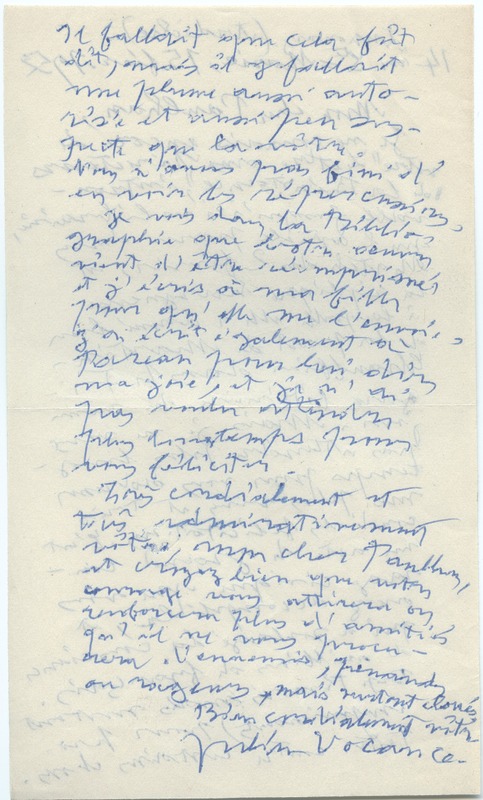 Il fallait que cela fût
dit, mais il y fallait
une plume aussi auto-
risée et aussi peu sus-
pecte que la vôtre.
Vous n'avez pas fini d'
en voir les répercussions.
Je vois dans la Biblio-
graphie que votre
vient d'être réimprimé,
et j'écris à ma fille
pour qu'elle me l'envoie.
J'en écris également à
pour lui dire
ma joie, et je n'ai
pas voulu attendre
plus longtemps pour
vous féliciter.
Très cordialement et
très admirativement
vôtre, mon cher Paulhan,
et croyez bien que votre
courage vous attirera ou
renforcera plus d'amitiés
qu'il ne vous procu-
rera d'ennemis,
ou rageurs, mais surtout
Bien cordialement vôtre
Julien Vocance.